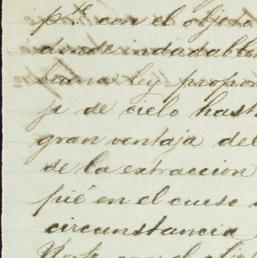 pte con el objeto
donde indudable
buena ley propor
je de cielo hast
gran ventaja del
de la extraccion
pié en el curso
circunstancia